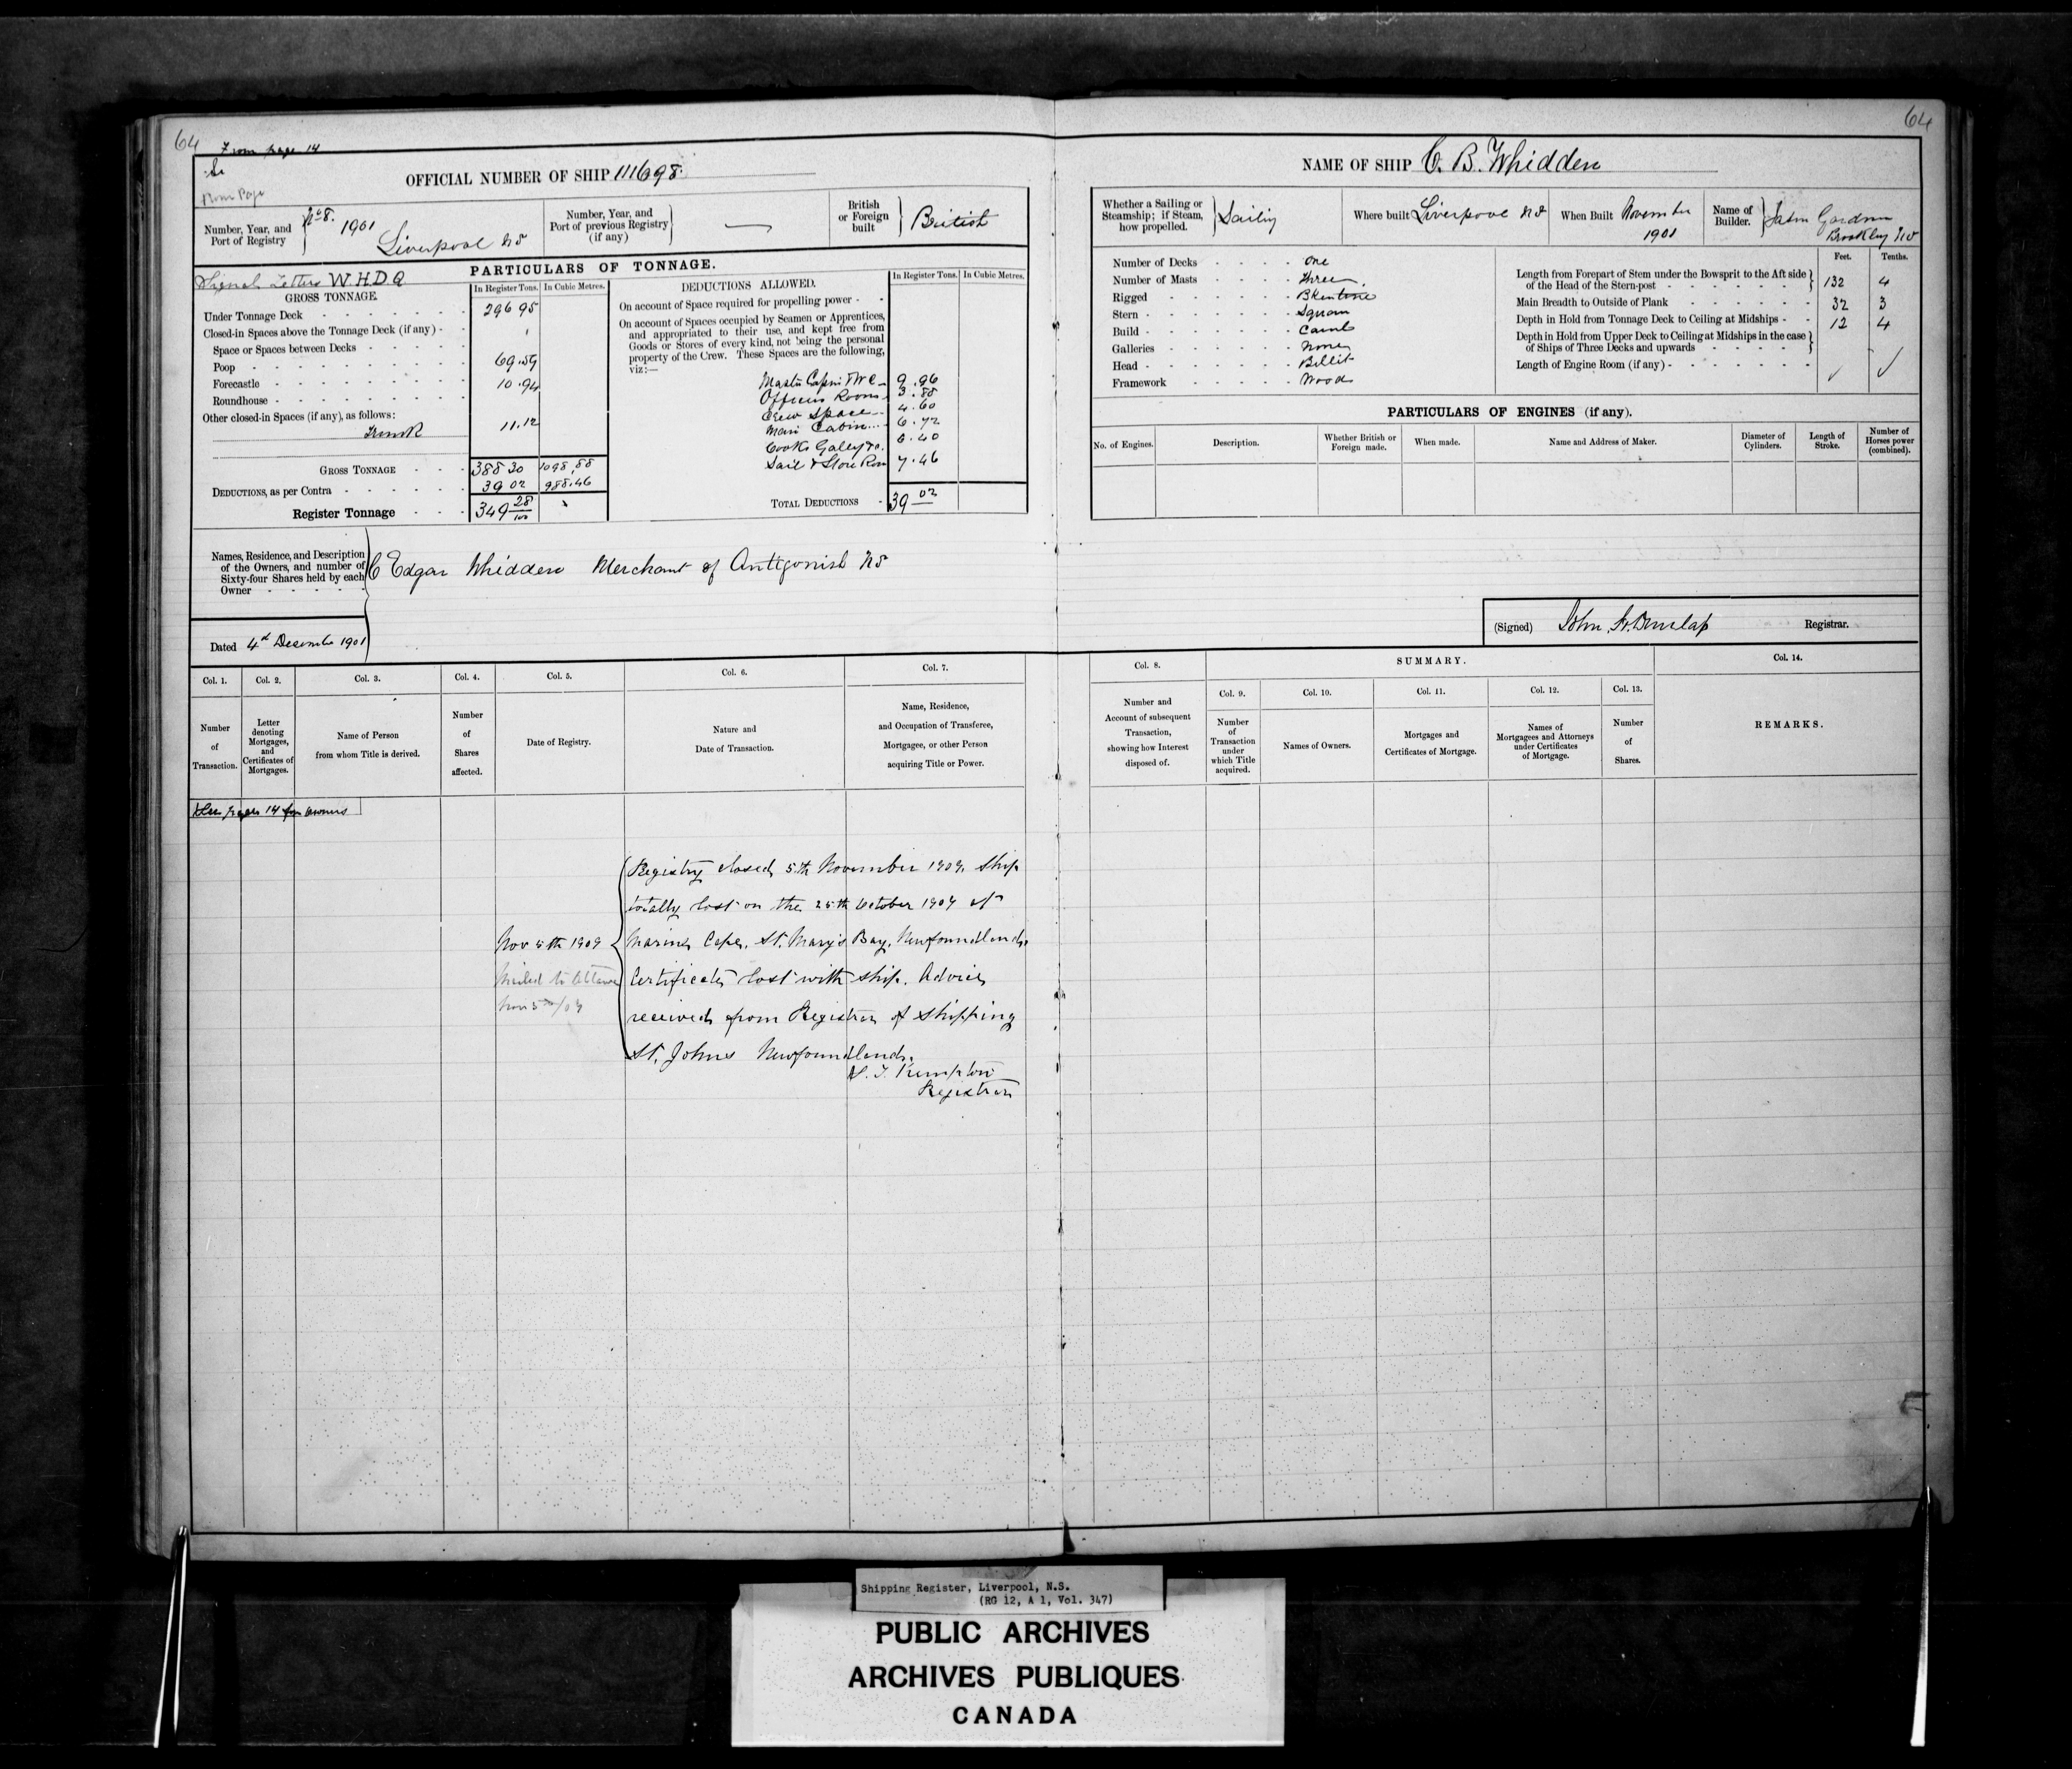 64
From page 14
64
OFFICIAL NUMBER OF SHIP 111698.
NAME OF SHIP C. B. Whidden
Number, Year, and Port of Registry No 8. 1901 Liverpool NS
Number, Year, and Port of previous Registry (if any) —
British or Foreign built British
Whether a Sailing or Steamship; if Steam, how propelled. Sailing
Where built Liverpool NS
When Built November 1901
Name of Builder. Jason Gardner Brooklyn NS
Signal Letters W.H.D.Q
PARTICULARS OF TONNAGE.
GROSS TONNAGE.
In Register Tons. In Cubic Metres.
Under Tonnage Deck 296 95
Closed-in Spaces above the Tonnage Deck (if any)
Space or Spaces between Decks
Poop 69.59
Forecastle 10.94
Roundhouse
Other closed-in Spaces (if any), as follows:
Trunk 11.12
GROSS TONNAGE 388 30 1098.88
DEDUCTIONS, as per Contra 39 02 988.46
Register Tonnage 349 28/100
DEDUCTIONS ALLOWED.
In Register Tons. In Cubic Metres.
On account of Space required for propelling power
On account of Spaces occupied by Seamen or Apprentices, and appropriated to their use, and kept free from Goods or Stores of every kind, not being the personal property of the Crew. These Spaces are the following, viz:—
Master Cabin & WC 9.96
Officers Room 3.88
Crew Space 4.60
Main Cabin 6.72
Cooks Galley &c. 6.40
Sail & Store Room 7.46
TOTAL DEDUCTIONS 39 02
Number of Decks One
Number of Masts Three
Rigged Bkentine
Stern Square
Build Carvel
Galleries None
Head Billet
Framework Wood
Feet. Tenths.
Length from Forepart of Stem under the Bowsprit to the Aft side of the Head of the Stern-post 132 4
Main Breadth to Outside of Plank 32 3
Depth in Hold from Tonnage Deck to Ceiling at Midships 12 4
Depth in Hold from Upper Deck to Ceiling at Midships in the case of Ships of Three Decks and upwards
Length of Engine Room (if any)
PARTICULARS OF ENGINES (if any).
No. of Engines. Description. Whether British or Foreign made. When made. Name and Address of Maker. Diameter of Cylinders. Length of Stroke. Number of Horses power (combined).
Names, Residence, and Description of the Owners, and number of Sixty-four Shares held by each Owner
C Edgar Whidden Merchant of Antigonish NS
Dated 4th December 1901
(Signed) John H. Dunlap Registrar.
Col. 1. Col. 2. Col. 3. Col. 4. Col. 5. Col. 6. Col. 7. Col. 8. SUMMARY. Col. 14.
Col. 9. Col. 10. Col. 11. Col. 12. Col. 13.
Number of Transaction.
Letter denoting Mortgages, and Certificates of Mortgages.
Name of Person from whom Title is derived.
Number of Shares affected.
Date of Registry.
Nature and Date of Transaction.
Name, Residence, and Occupation of Transferee, Mortgagee, or other Person acquiring Title or Power.
Number and Account of subsequent Transaction, showing how Interest disposed of.
Number of Transaction under which Title acquired.
Names of Owners.
Mortgages and Certificates of Mortgage.
Names of Mortgagees and Attorneys under Certificates of Mortgage.
Number of Shares.
REMARKS.
See page 14 for owners
Registry closed 5th November 1909. Ship
totally lost on the 25th October 1909 at
Nov 5th 1909
Marine Cape, St. Mary's Bay, Newfoundland.
Mailed to Ottawa
Certificate lost with ship. Advice
Nov 5th/09
received from Registrar of Shipping
St. Johns Newfoundland.
Registrar
Shipping Register, Liverpool, N.S.
(RG 12, A 1, Vol. 347)
PUBLIC ARCHIVES
ARCHIVES PUBLIQUES
CANADA